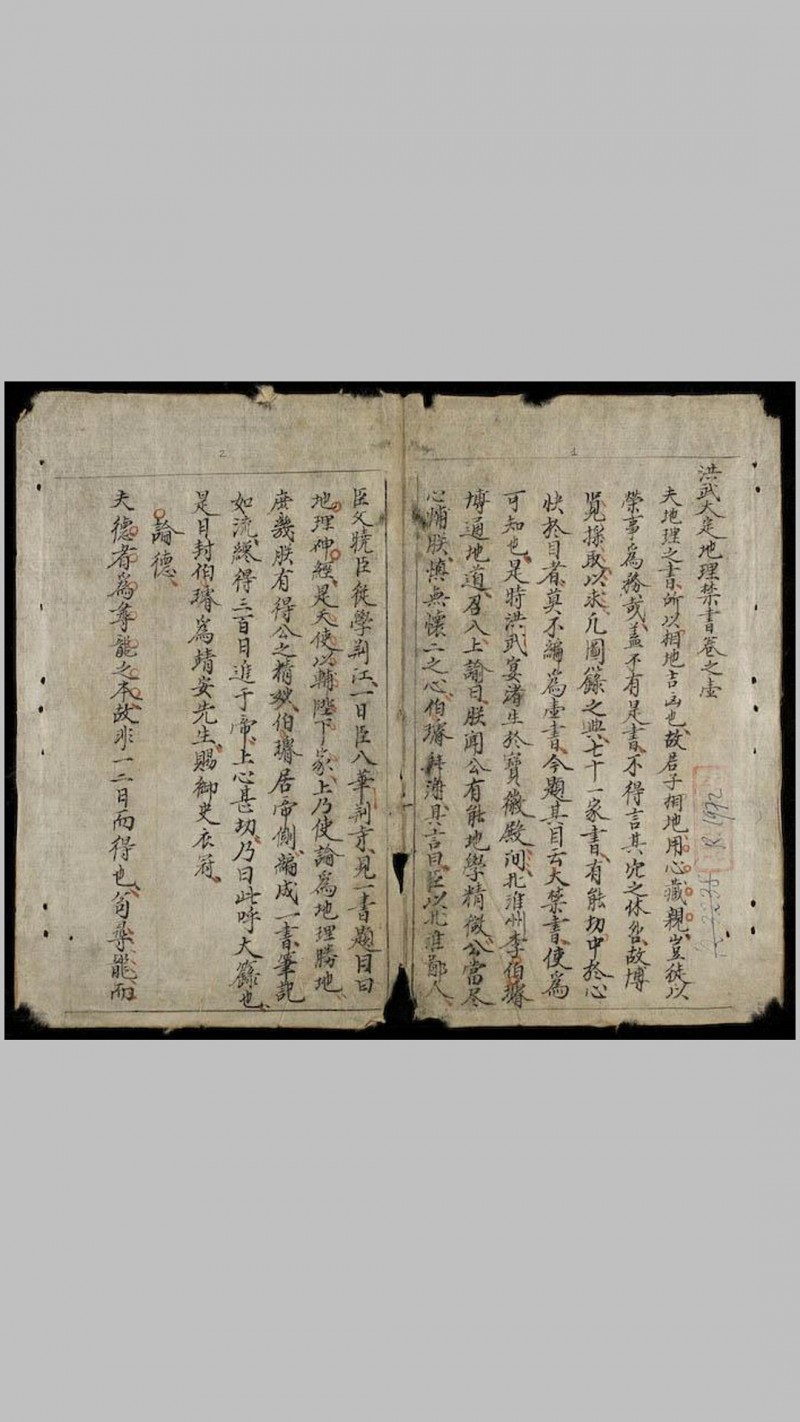 洪武大定地理禁書卷之壹
夫地理之書所以相地吉凶也故君子相地用心藏親豈徒以
榮事為務哉盖不有是書不得言其穴之休咎故博
覓採取以求凡圖籙之典七十一家書有能切中於心
快於目者莫不編為壹書今題其目云大禁書使為
可知也是時洪武宴渚生於寶徽殿间北淮州李伯璿
博通地道召入上諭曰朕聞公有能地學精微公當尽
心輔朕慎無懷二之心伯璿拜謝具言曰臣以北淮鄙人
臣父驍臣從學荆江一日臣入華荆京見一書題目曰
地理神經是天使以輔陛下家上乃使論為地理勝地
庶幾朕有得公之精伯璿居帝側編成一書筆記
如流纔得三百日進于帝上心甚切乃曰此呼大籙也
是日封伯璿為靖安先生賜御史衣冠
論德
夫德者為尋龍之本故非一二日而得也苟尋龍而
1
2
R.1992